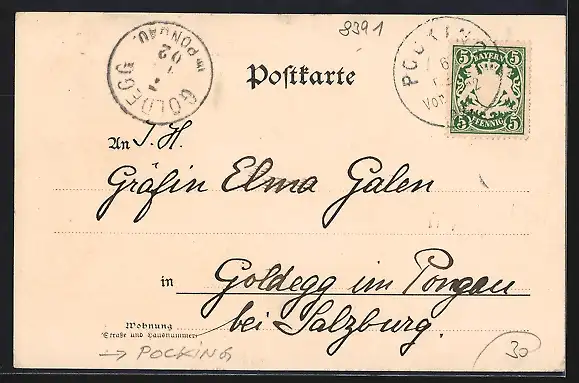 8391
GOLDEGG im PONGAU.
02
POCKING
6
Vor
BAYERN
5 5
5 PFENNIG 5
Postkarte
An I. H.
Gräfin Elma Galen
in Goldegg im Pongau
bei Salzburg.
Wohnung
(Straße und Hausnummer)
→ POCKING
30